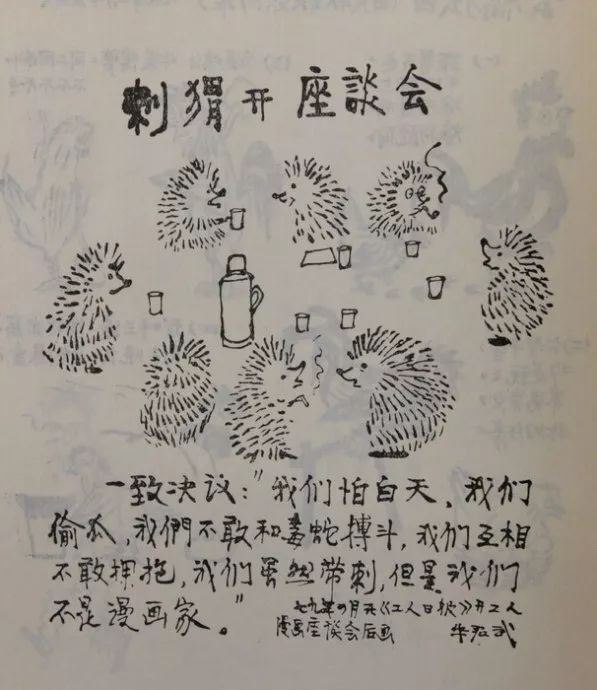 刺猬开座談会
一致决议:"我们怕白天、我们
偷瓜,我們不敢和毒蛇搏斗,我们互相
不敢拥抱,我们虽然带刺,但是我们
不是漫画家。"
七九年四月天《工人日报》开工人
漫画座谈会后画 华君武